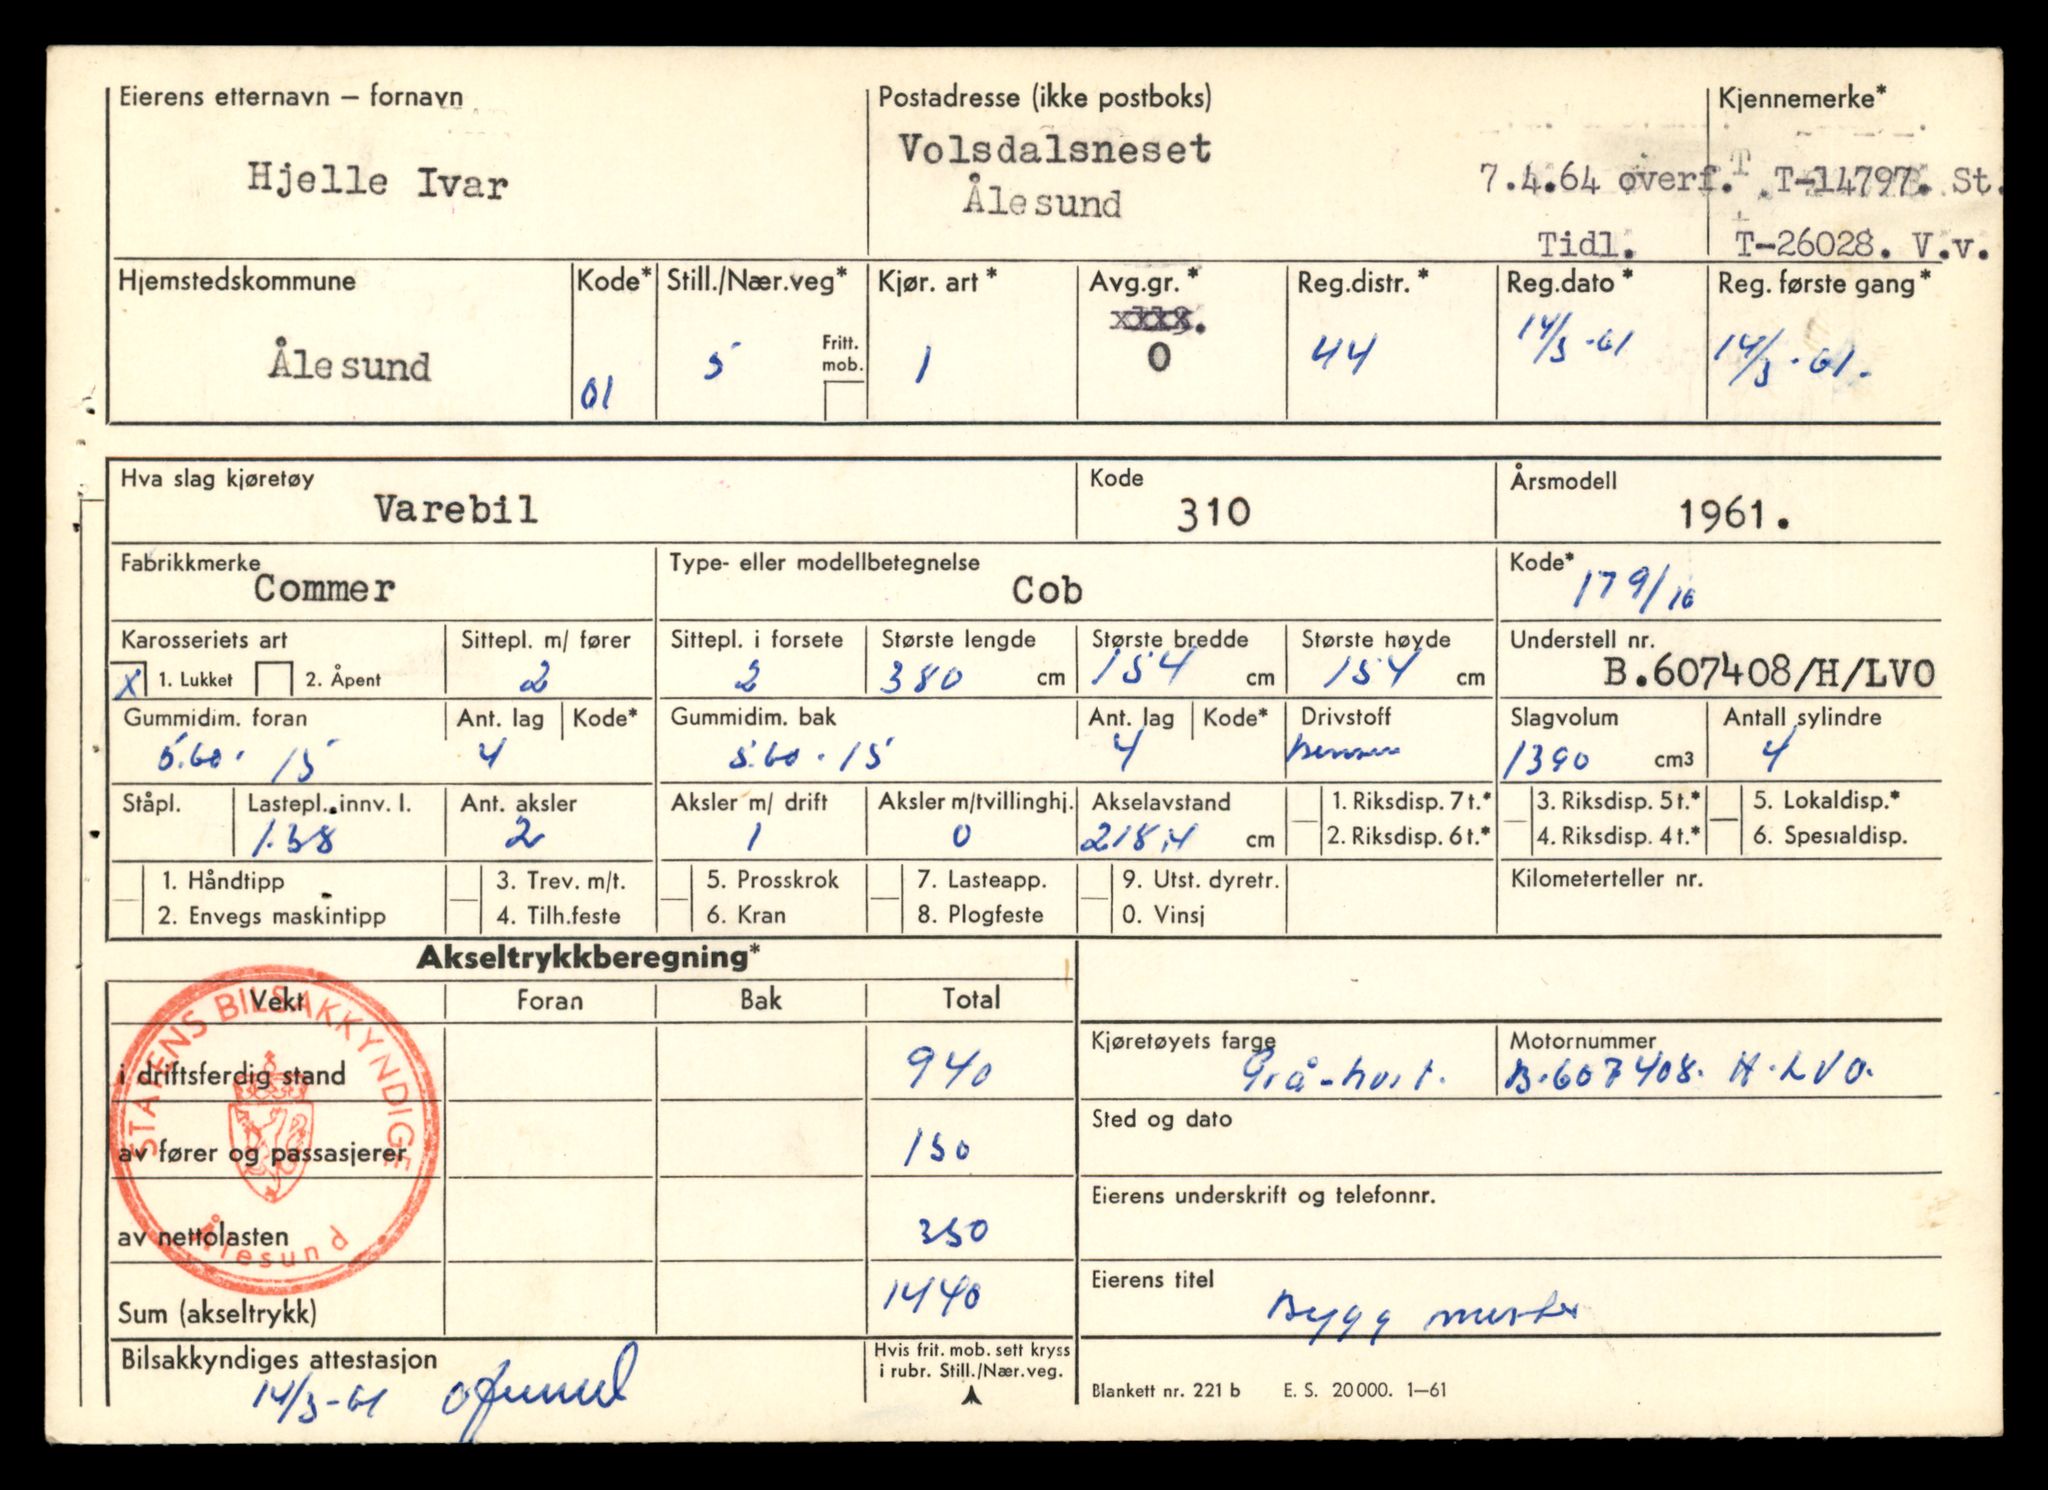 Eierens etternavn – fornavn
Hjelle Ivar
Postadresse (ikke postboks)
Volsdalsneset
Ålesund
Kjennemerke*
7.4.64 overf. T-14797. St.
Tidl. T-26028. V.v.
Hjemstedskommune
Ålesund
Kode*
01
Still./Nær.veg*
5
Fritt.
mob.
Kjør. art*
1
Avg.gr.*
0
Reg.distr.*
44
Reg.dato*
14/3-61
Reg. første gang*
14/3-61.
Hva slag kjøretøy
Varebil
Kode
310
Årsmodell
1961.
Fabrikkmerke
Commer
Type- eller modellbetegnelse
Cob
Kode*
179/10
Karosseriets art
X 1. Lukket 2. Åpent
Sittepl. m/ fører
2
Sittepl. i forsete
2
Største lengde
380 cm
Største bredde
154 cm
Største høyde
154 cm
Understell nr.
B.607408/H/LVO
Gummidim. foran
5.60 - 15
Ant. lag
4
Kode*
Gummidim. bak
5.60 - 15
Ant. lag
4
Kode*
Drivstoff
Bensin
Slagvolum
1390 cm3
Antall sylindre
4
Ståpl.
Lastepl. innv. l.
1.38
Ant. aksler
2
Aksler m/ drift
1
Aksler m/tvillinghj.
0
Akselavstand
218,4 cm
1. Riksdisp. 7 t.*
2. Riksdisp. 6 t.*
3. Riksdisp. 5 t.*
4. Riksdisp. 4 t.*
5. Lokaldisp.*
6. Spesialdisp.
1. Håndtipp
2. Envegs maskintipp
3. Trev. m/t.
4. Tilh.feste
5. Prosskrok
6. Kran
7. Lasteapp.
8. Plogfeste
9. Utst. dyretr.
0. Vinsj
Kilometerteller nr.
Akseltrykkberegning*
Vekt Foran Bak Total
i driftsferdig stand 940
av fører og passasjerer 150
av nettolasten 350
Sum (akseltrykk) 1440
STATENS BILSAKKYNDIGE
Ålesund
Kjøretøyets farge
Grå-hvit.
Motornummer
B.607408. H.LVO.
Sted og dato
Eierens underskrift og telefonnr.
Eierens titel
Byggmester
Bilsakkyndiges attestasjon
14/3-61
Hvis frit. mob. sett kryss
i rubr. Still./Nær.veg.
Blankett nr. 221 b E. S. 20000. 1–61